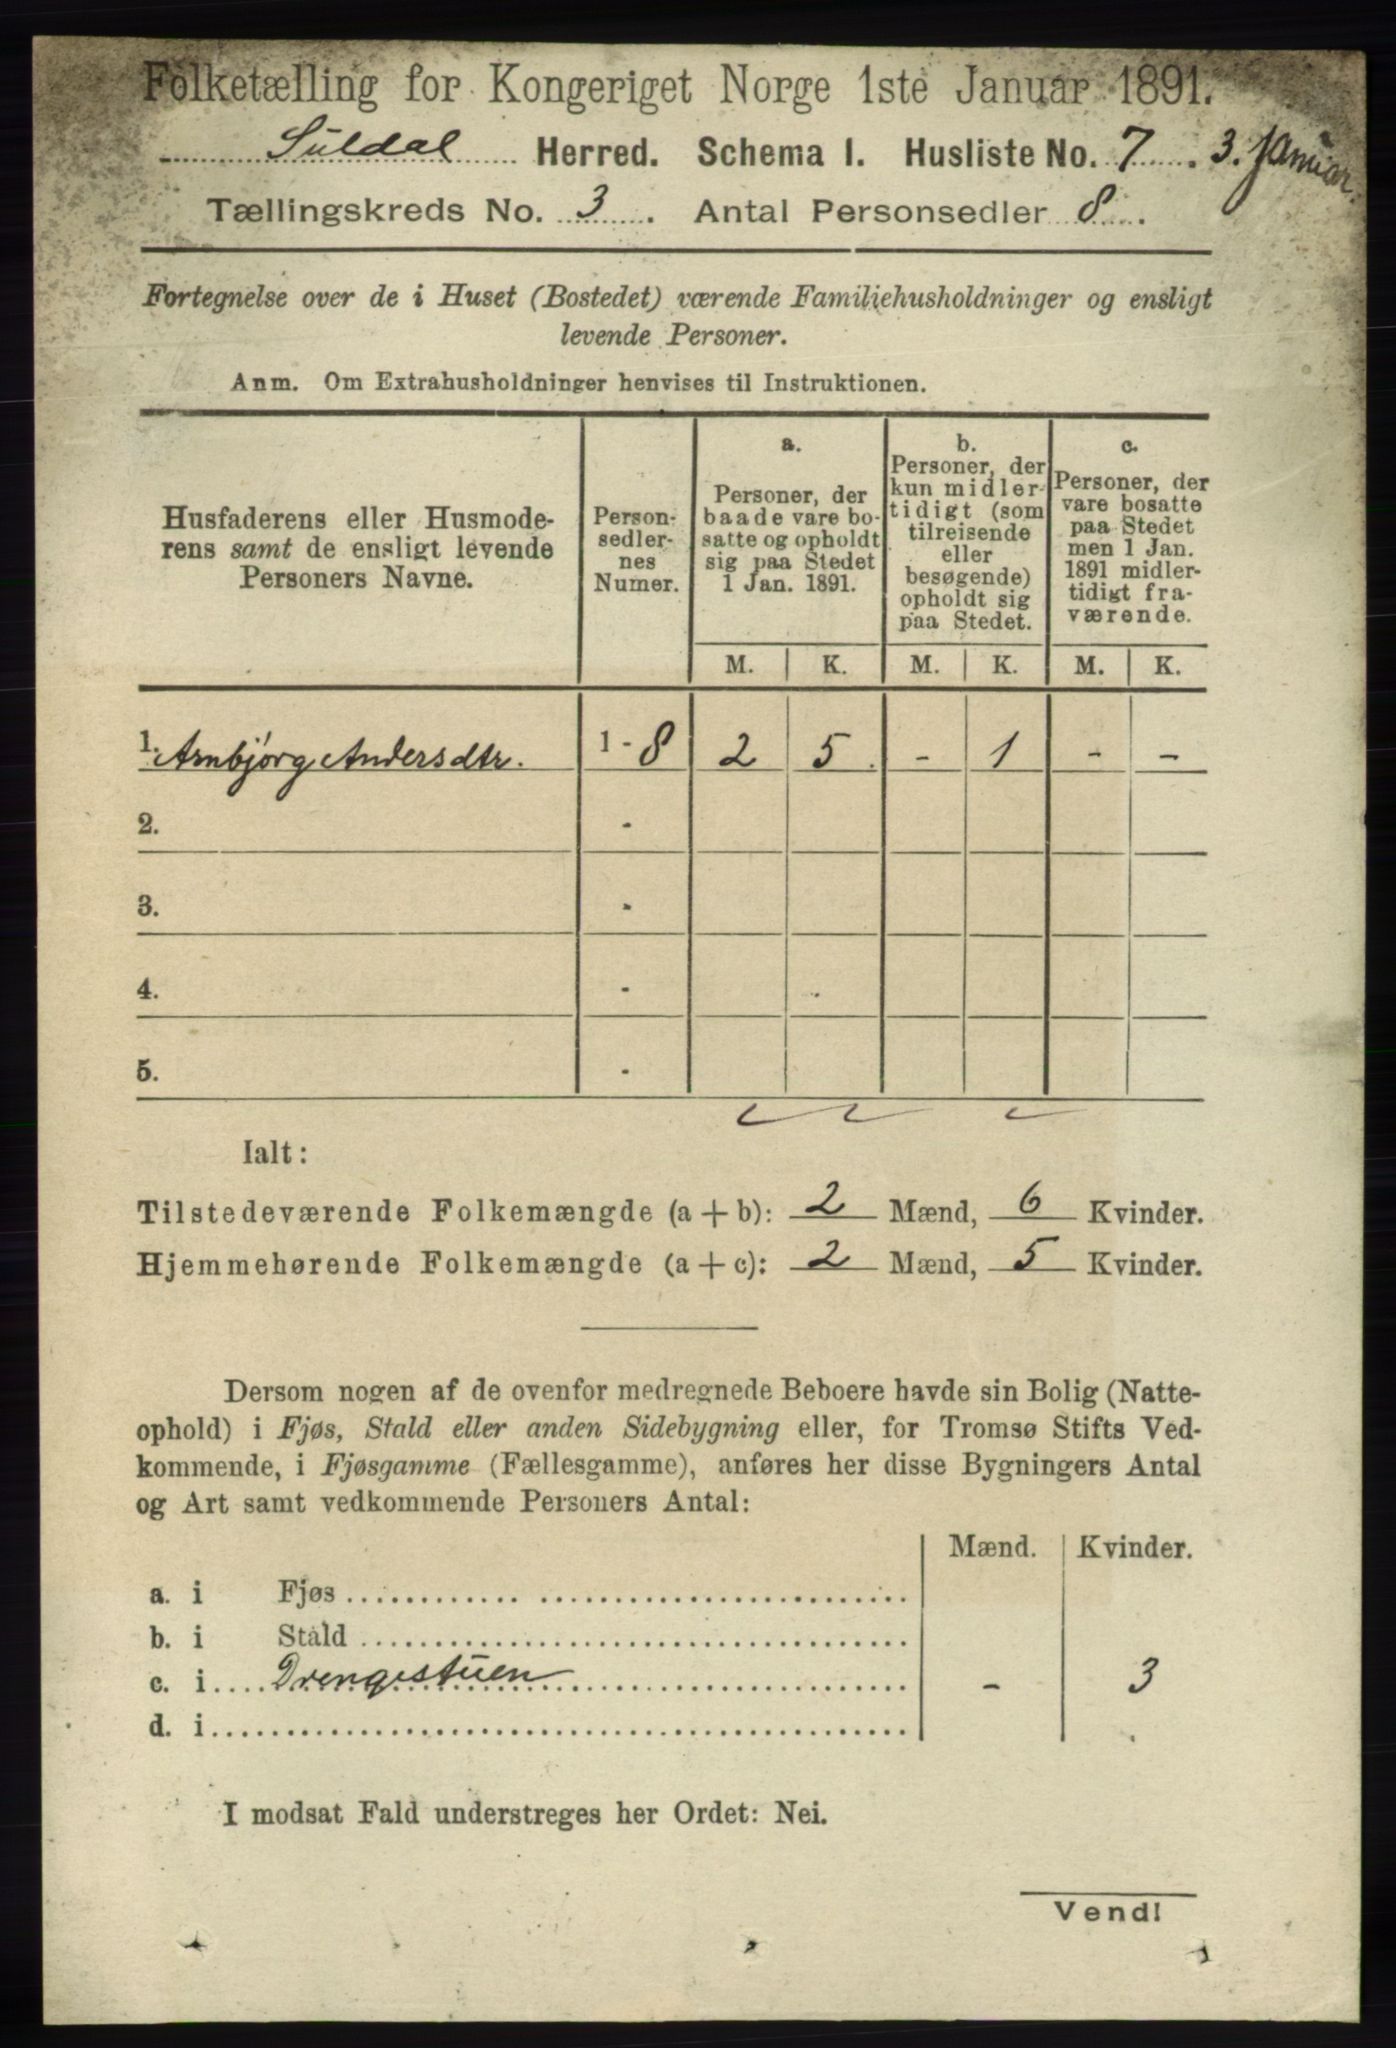 Folketælling for Kongeriget Norge 1ste Januar 1891.
Suldal Herred. Schema I. Husliste No. 7. 3. Januar.
Tællingskreds No. 3. Antal Personsedler 8.
Fortegnelse over de i Huset (Bostedet) værende Familiehusholdninger og ensligt
levende Personer.
Anm. Om Extrahusholdninger henvises til Instruktionen.
Husfaderens eller Husmode-
rens samt de ensligt levende
Personers Navne.
Person-
sedler-
nes
Numer.
a.
Personer, der
baade vare bo-
satte og opholdt
sig paa Stedet
1 Jan. 1891.
b.
Personer, der
kun midler-
tidigt (som
tilreisende
eller
besøgende)
opholdt sig
paa Stedet.
c.
Personer, der
vare bosatte
paa Stedet
men 1 Jan.
1891 midler-
tidigt fra-
værende.
M. K. M. K. M. K.
1. Arnbjørg Andersdtr. 1 - 8 2 5 - 1 - -
2. -
3. -
4. -
5. -
Ialt:
Tilstedeværende Folkemængde (a + b): 2 Mænd, 6 Kvinder.
Hjemmehørende Folkemængde (a + c): 2 Mænd, 5 Kvinder.
Dersom nogen af de ovenfor medregnede Beboere havde sin Bolig (Natte-
ophold) i Fjøs, Stald eller anden Sidebygning eller, for Tromsø Stifts Ved-
kommende, i Fjøsgamme (Fællesgamme), anføres her disse Bygningers Antal
og Art samt vedkommende Personers Antal:
Mænd. Kvinder.
a. i Fjøs
b. i Stald
c. i Drengestuen - 3
d. i
I modsat Fald understreges her Ordet: Nei.
Vend!